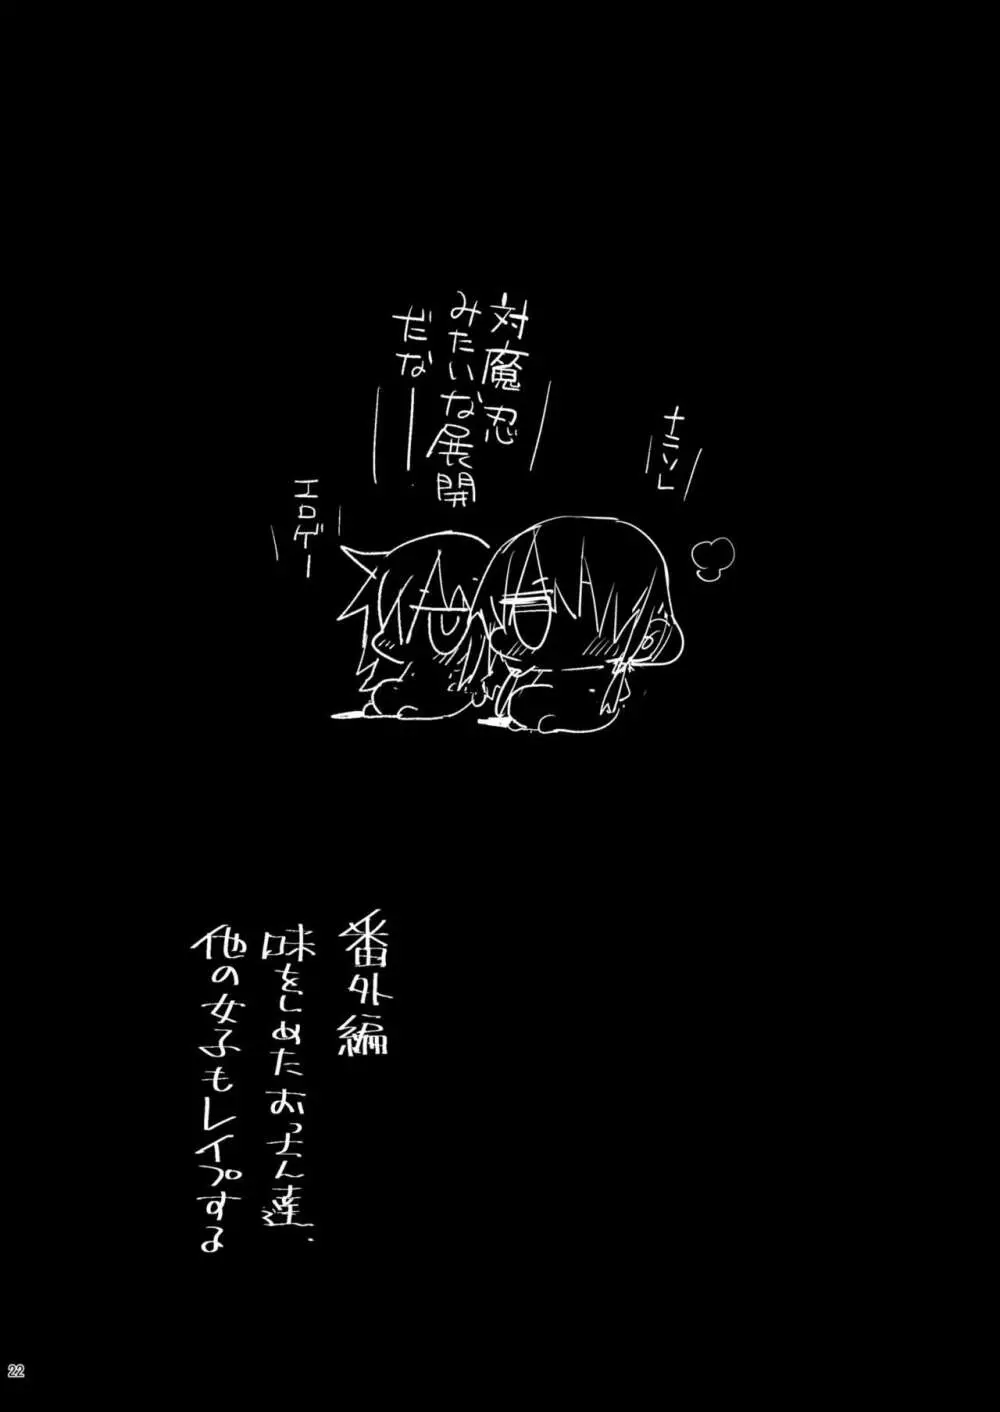 ナニソレ
対魔忍
みたいな展開
だなーー
エロゲー
番外編
味をしめたおっさん達、
他の女子もレイプする
22